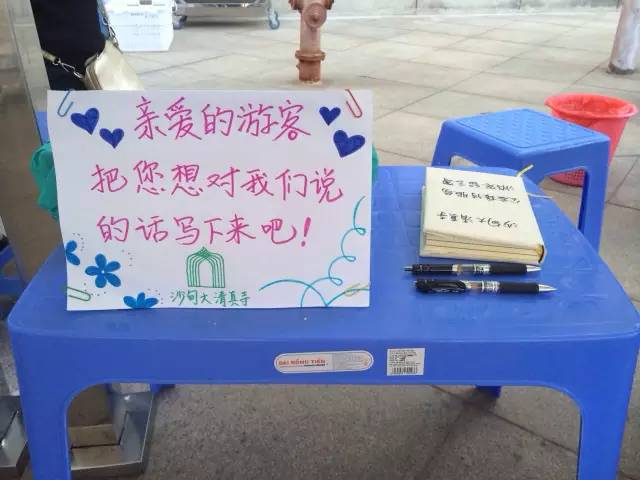 亲爱的游客
把您想对我们说
的话写下来吧!
沙甸大清真寺
沙甸大清真寺
DAI DONG TIEN